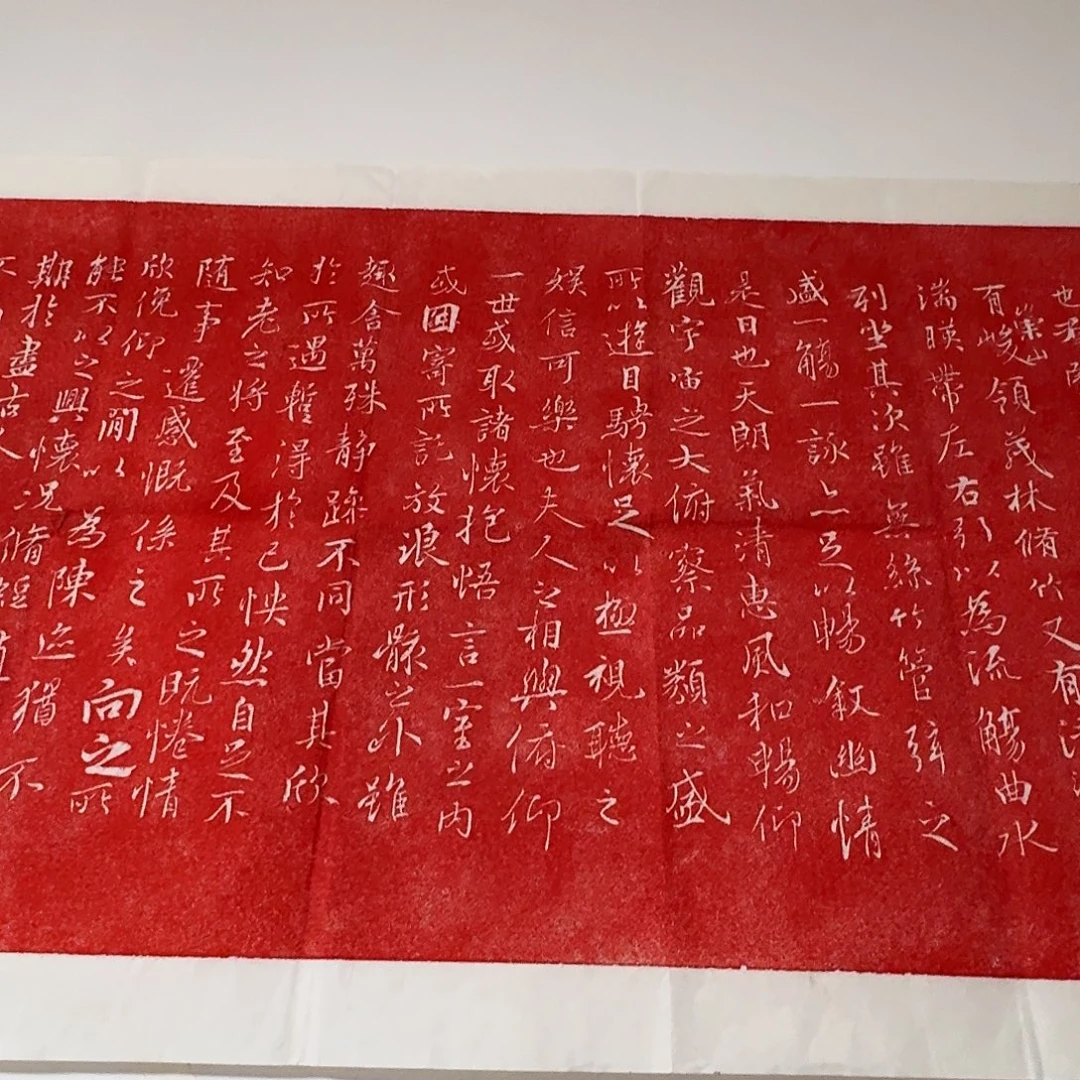 也
有崇山峻領茂林脩竹又有清
湍暎帶左右引以為流觴曲水
列坐其次雖無絲竹管弦之
盛一觴一詠亦足以暢叙幽情
是日也天朗氣清惠風和暢仰
觀宇宙之大俯察品類之盛
所以遊目騁懷足以極視聽之
娛信可樂也夫人之相與俯仰
一世或取諸懷抱悟言一室之內
或因寄所託放浪形骸之外雖
趣舍萬殊静躁不同當其欣
於所遇暫得於己怏然自足不
知老之將至及其所之既惓情
隨事遷感慨係之矣向之所
欣俛仰之閒以為陳迹猶不
能不以之興懷況脩短
期於盡古人